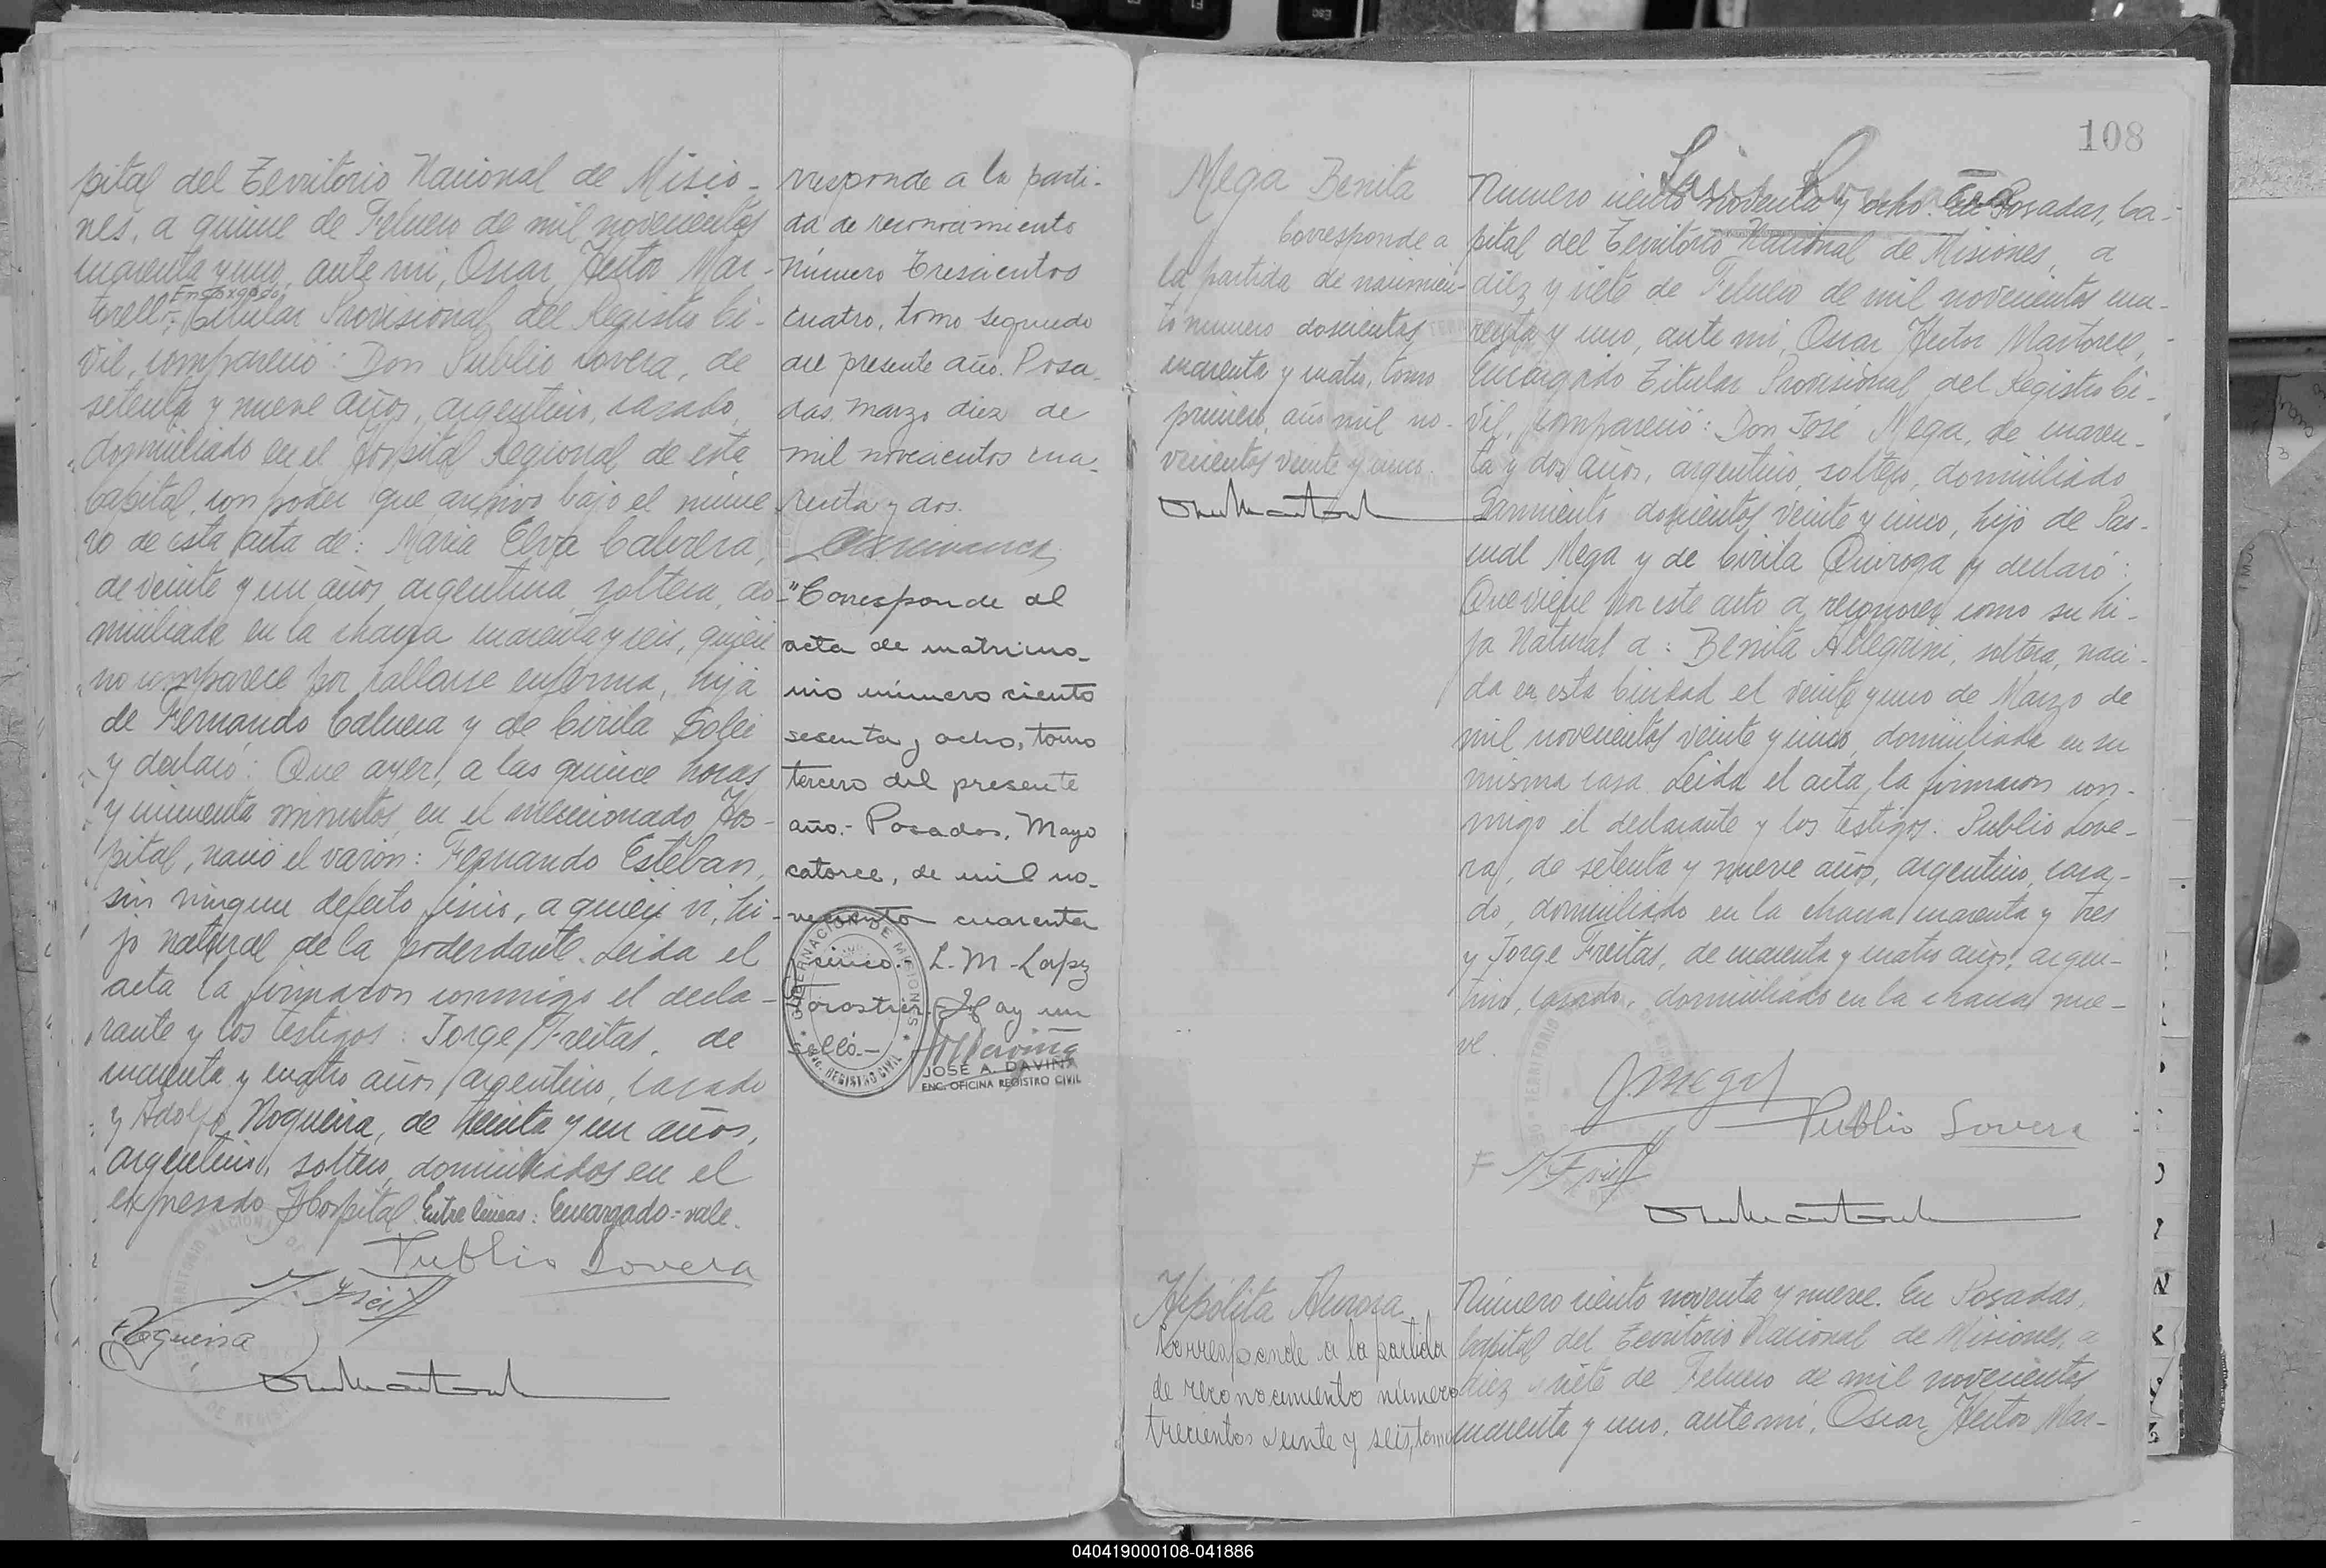 pital del Territorio Nacional de Misio-
nes, a quince de Febrero de mil novecientos
cuarenta y uno, ante mi, Oscar Hector Mar-
Encargado
torell, Titular Provisional del Registro Ci-
vil, compareció: Don Publio Lovera, de
setenta y nueve años, argentino, casado,
domiciliado en el Hospital Regional de esta
Capital, con poder que archivo bajo el núme-
ro de esta acta de: Maria Elva Cabrera,
de veinte y un años argentina, soltera, do-
miciliada en la chacra cuarenta y seis, quién
no comparece por hallarse enferma, hija
de Fernando Cabrera y de Cirila
y declaró: Que ayer, a las quince horas
y cincuenta minutos, en el mencionado Hos-
pital, nació el varón: Fernando Esteban,
sin ningun defecto físico, a quién vi, hi-
jo natural de la poderdante. Leida el
acta la firmaron conmigo el decla-
rante y los testigos: Jorge Freitas, de
cuarenta y cuatro años, argentino, casado
y Adolfo Nogueira, de treinta y un años,
argentino, soltero, domiciliados en el
expresado Hospital. Entre lineas: Encargado-vale.
Publio Lovera
J. Freit
Nogueira
rresponde a la parti-
da de reconocimiento
número tresientos
cuatro, tomo segundo
del presente año. Posa-
das, marzo diez de
mil novecientos cua-
renta y dos.
"Corresponde al
acta de matrimo-
nio número ciento
sesenta y ocho, tomo
tercero del presente
año.- Posadas, Mayo
catorce, de mil no-
veciento cuarenta
cinco.- L. M. Lopez
Torostiei. Hay un
sello.-
GOBERNACION DE MISIONES
ENC. REGISTRO CIVIL
JOSE A. DAVIÑA
ENC. OFICINA REGISTRO CIVIL
108
Mega Benita
Corresponde a
la partida de nacimien-
to numero doscientos
cuarenta y cuatro, tomo
primero, año mil no-
vecientos veinte y cinco.
Número ciento noventa y ocho. En Posadas, Ca-
pital del Territorio Nacional de Misiones, a
diez y siete de Febrero de mil novecientos cua-
renta y uno, ante mi, Oscar Hector Martorell,
Encargado Titular Provisional del Registro Ci-
vil, compareció: Don José Mega, de cuaren-
ta y dos años, argentino, soltero, domiciliado
Sarmiento doscientos veinte y cinco, hijo de Pas-
cual Mega y de Cirila Quiroga y declaró:
Que viene por este acto a reconocer como su hi-
ja Natural a: Benita Allegrini, soltera, naci-
da en esta Ciudad el veinte y uno de Marzo de
mil novecientos veinte y cinco, domiciliada en su
misma casa. Leida el acta, la firmaron con-
migo el declarante y los testigos: Publio Love-
ra, de setenta y nueve años, argentino, casa-
do, domiciliado en la chacra cuarenta y tres
y Jorge Freitas, de cuarenta y cuatro años, argen-
tino, casado, domiciliado en la chacra nue-
ve.
J. Mega
Publio Lovera
J. Freit
Hipólita Aurora
Corresponde a la partida
de reconocimiento número
trecientos veinte y seis, tomo
Número ciento noventa y nueve. En Posadas,
Capital del Territorio Nacional de Misiones, a
diez y siete de Febrero de mil novecientos
cuarenta y uno, ante mi, Oscar Hector Mar-
040419000108-041886